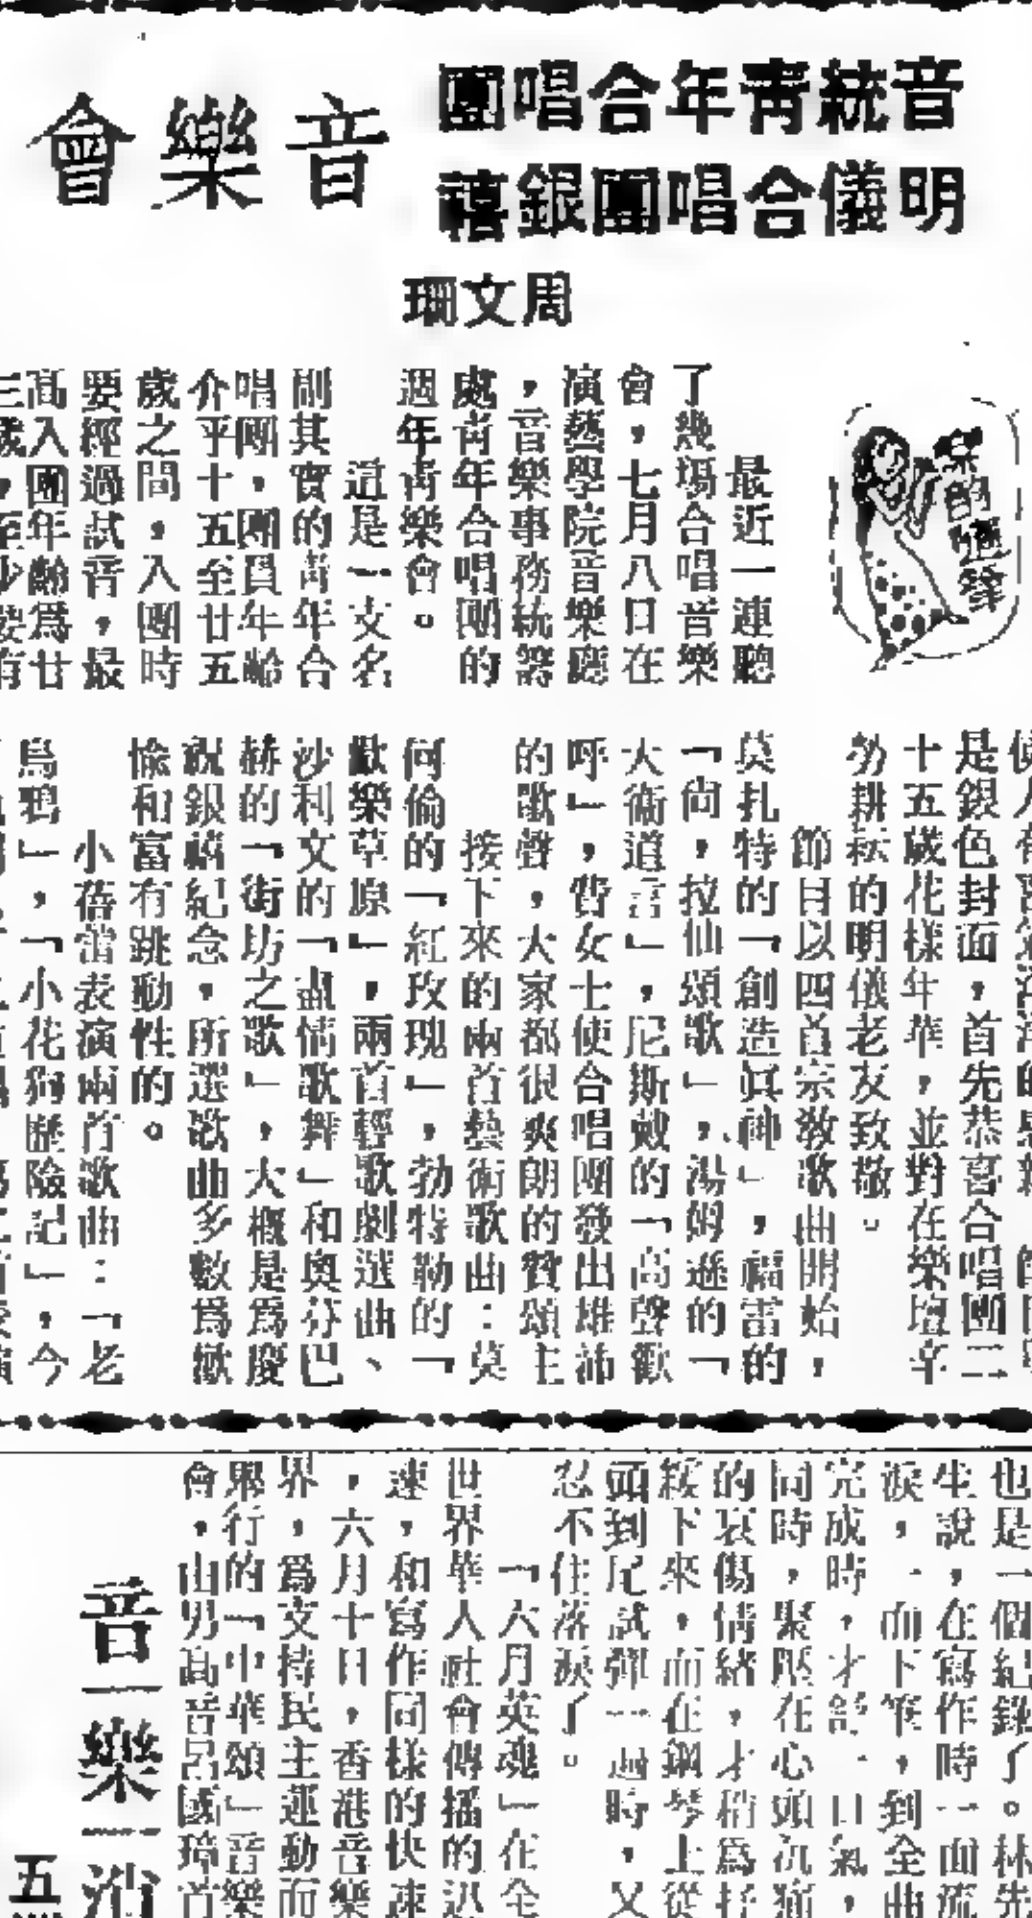 音統青年合唱團
明儀合唱團銀禧
音樂會
周文珊
最近一連聽
了幾場合唱音樂
會，七月八日在
演藝學院音樂廳
，音樂事務統籌
處靑年合唱團的
週年音樂會。
這是一支名
副其實的靑年合
唱團，團員年齡
介乎十五至廿五
歲之間，入團時
要經過試音，最
高入團年齡爲廿
三歲，至少要有
是銀色封面，首先恭喜合唱團二
十五歲花樣年華，並對在樂壇辛
勞耕耘的明儀老友致敬。
節目以四首宗敎歌曲開始，
莫扎特的「創造眞神」，福雷的
「尙，拉仙頌歌」，湯姆遜的「
大衞道言」，尼斯戴的「高聲歡
呼」，費女士使合唱團發出雄沛
的歌聲，大家都很爽朗的贊頌主
接下來的兩首藝術歌曲：莫
何倫的「紅玫瑰」，勃特勒的「
歡樂草原」，兩首輕歌劇選曲、
沙利文的「盡情歌舞」和奧芬巴
赫的「街坊之歌」，大槪是爲慶
祝銀禧紀念，所選歌曲多數爲歡
愉和富有跳動性的。
小蓓蕾表演兩首歌曲：「老
烏鴉」，「小花狗歷險記」，今
也是一個紀錄了。林先
生說，在寫作時一面流
淚，一面下筆，到全曲
完成時，才舒一口氣，
同時，聚壓在心頭沉痛
的哀傷情緒，才稍爲抒
緩下來，而在鋼琴上從
頭到尾試彈一過時，又
忍不住落淚了。
「六月英魂」在全
世界華人社會傳播的迅
速，和寫作同樣的快速
，六月十日，香港音樂
界，爲支持民主運動而
舉行的「中華頌」音樂
會，由男高音呂國璋首
音樂消
五